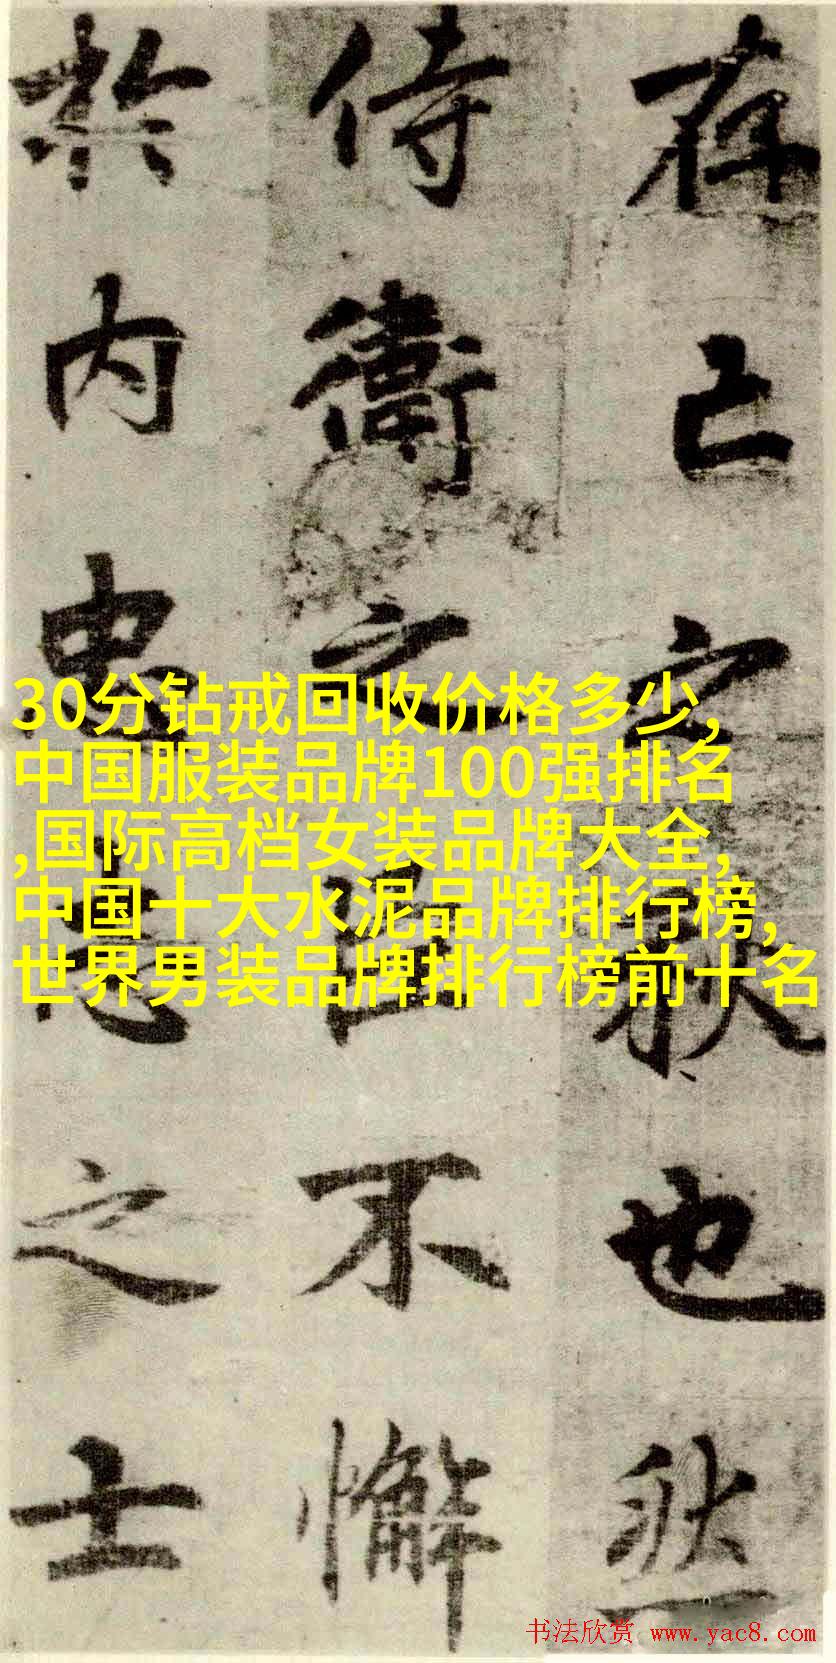 存亡之秋也然
侍衛之臣不懈
於内忠志之士
30分钻戒回收价格多少,
中国服装品牌100强排名
,国际高档女装品牌大全,
中国十大水泥品牌排行榜,
世界男装品牌排行榜前十名
书法欣赏 www.yac8.com